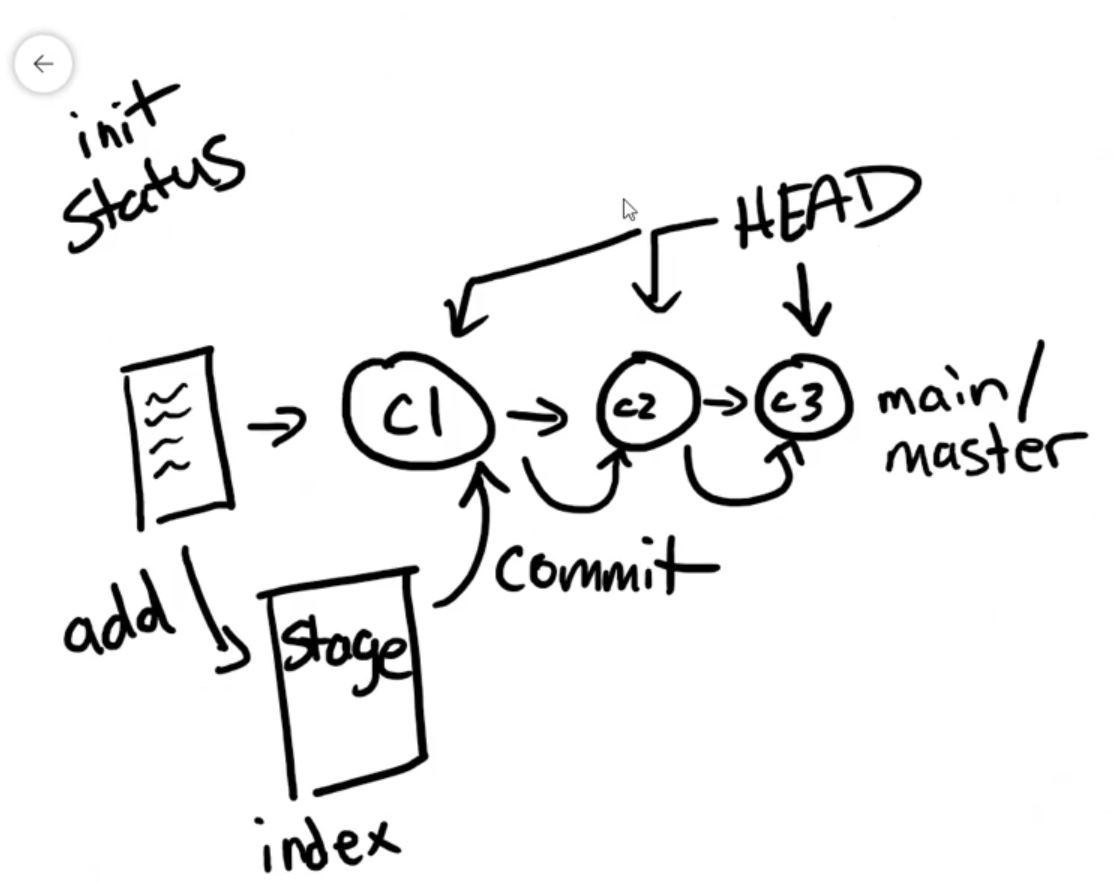 init
status
HEAD
C1
c2
c3
main/
master
add
commit
stage
index